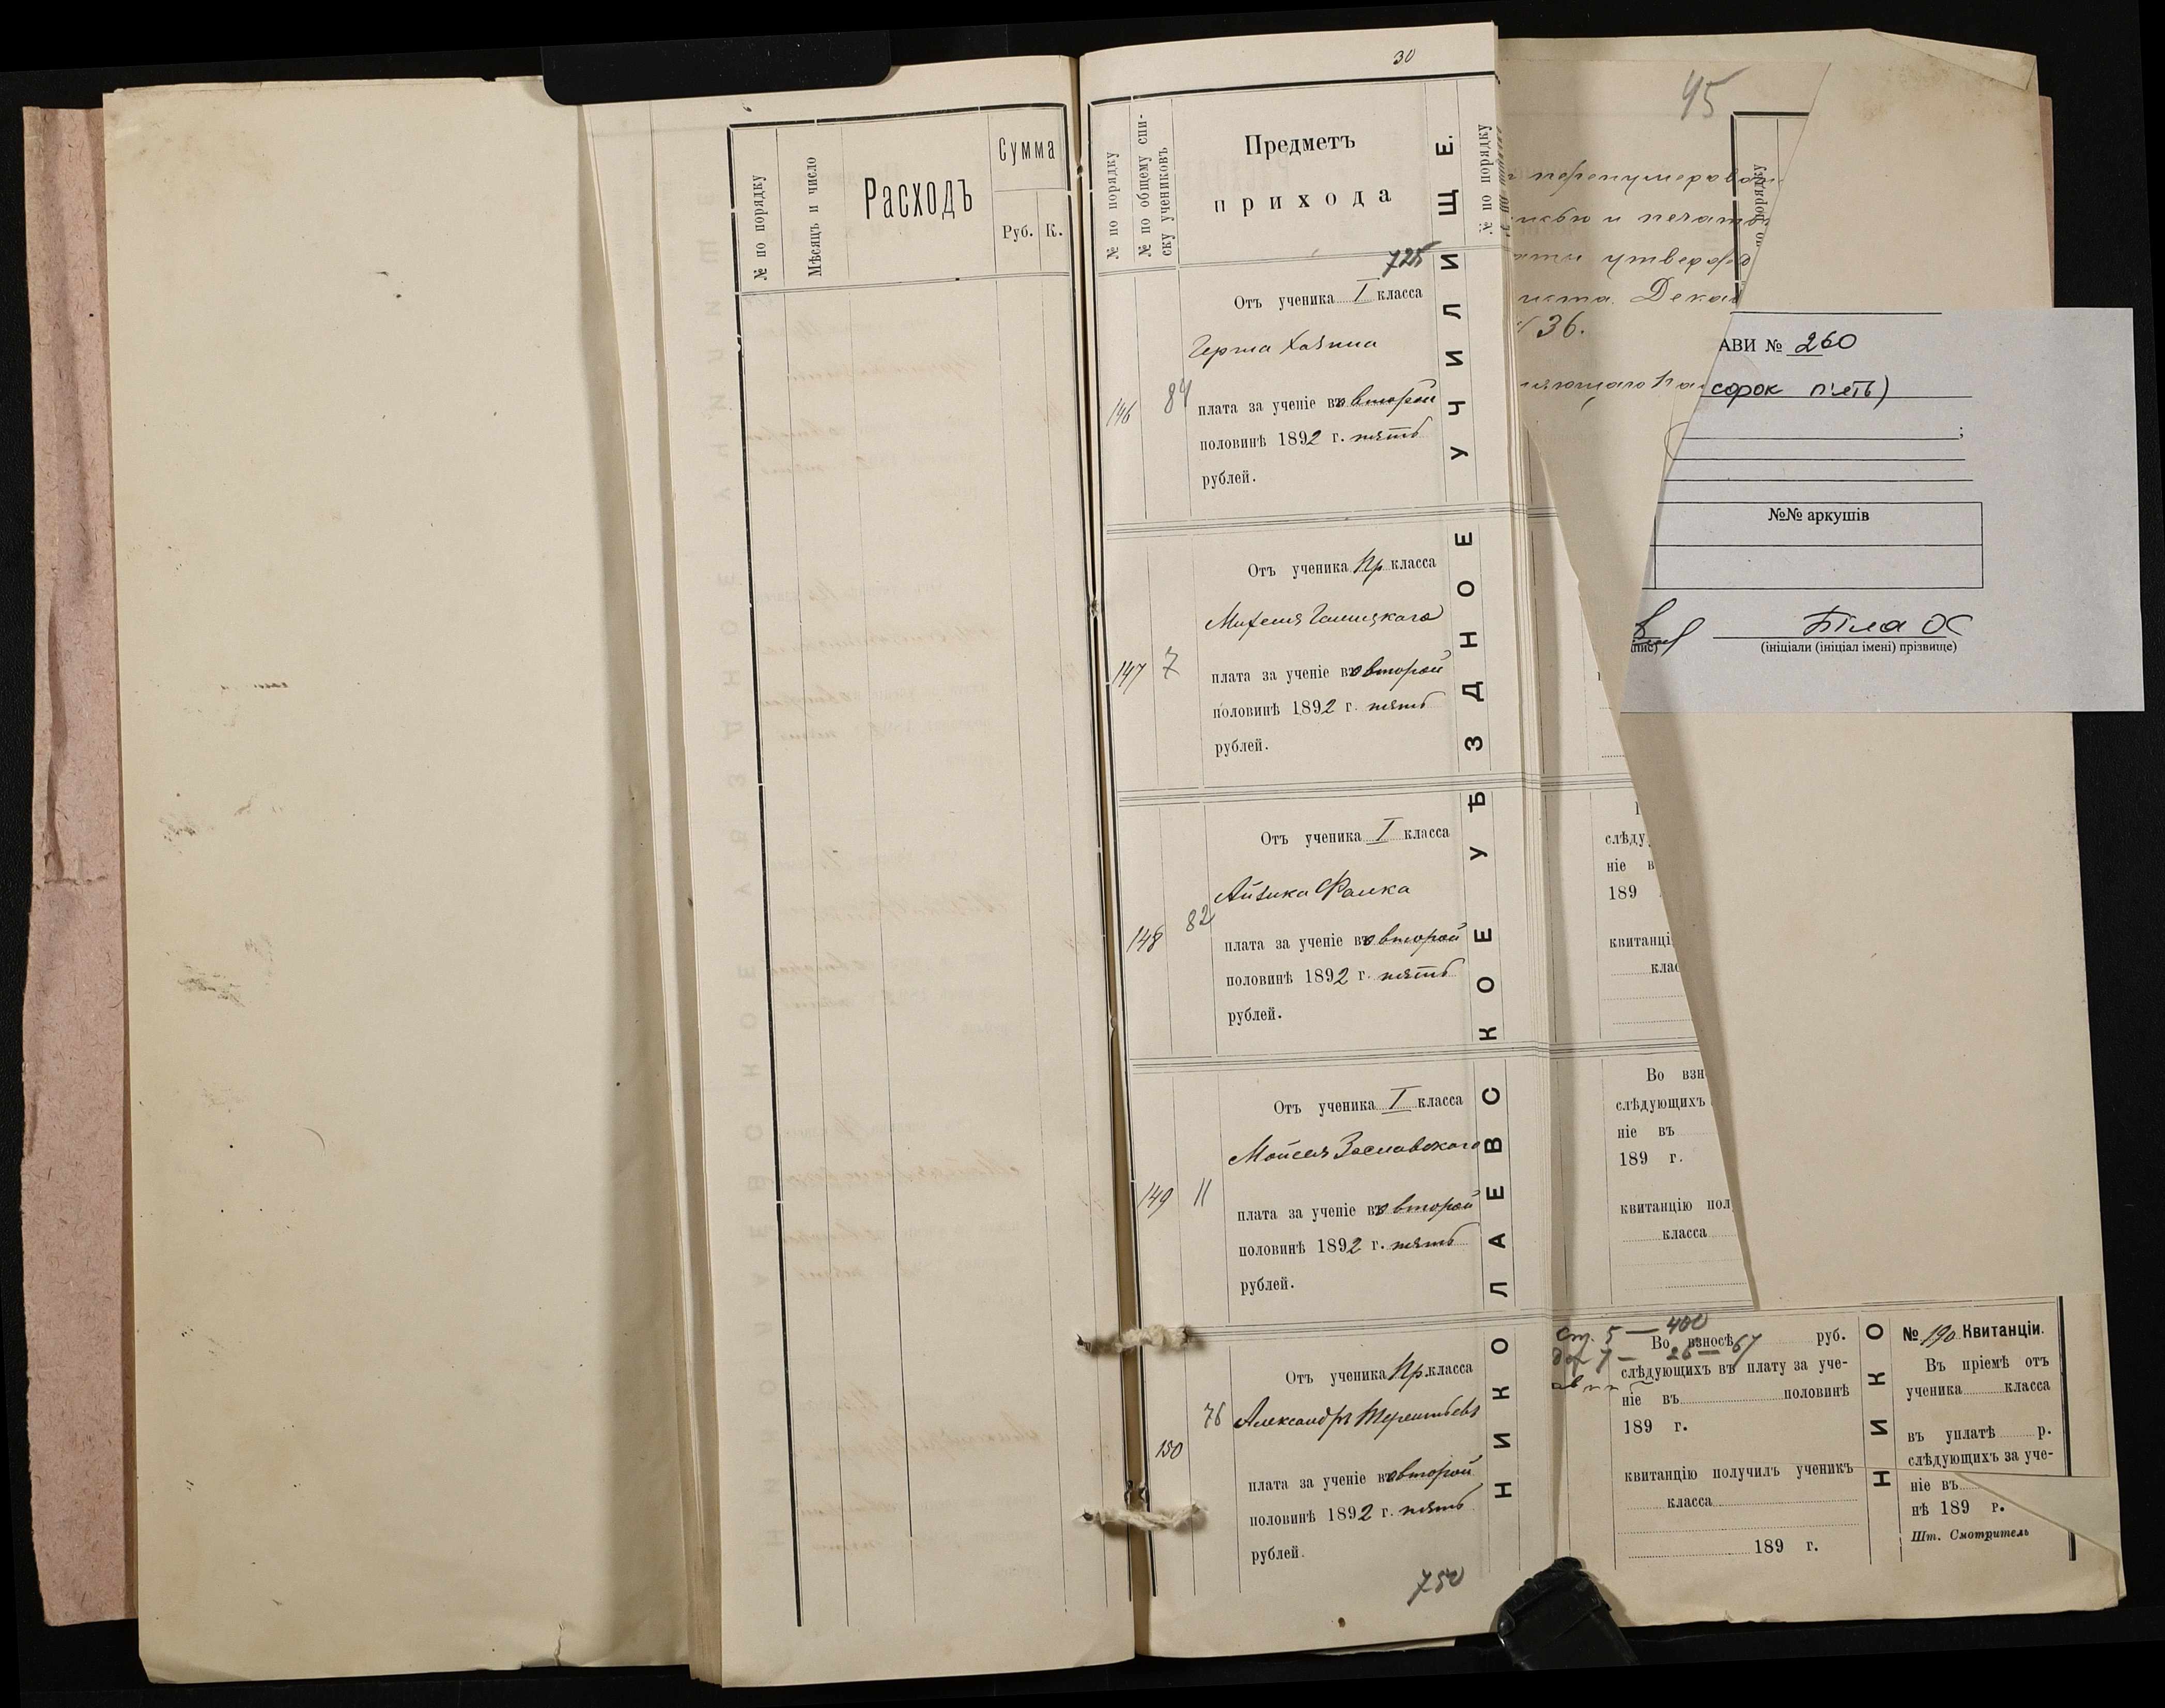 № по порядку
Мѣсяцъ и число
Расходъ
Сумма
Руб.
К.
30
№ по порядку
№ по общему спи-
ску учениковъ
Предметъ
прихода
№ по порядку
НИКОЛАЕВСКОЕ УѢЗДНОЕ УЧИЛИЩЕ.
725
146
84
Отъ ученика I класса
Герша Хаямиа
плата за ученіе въ второй
половинѣ 1892 г. пять
рублей.
147
7
Отъ ученика Пр класса
Михеля Галицкаго
плата за ученіе въ второй
половинѣ 1892 г. пять
рублей.
148
82
Отъ ученика I класса
Айзика Фалка
плата за ученіе въ второй
половинѣ 1892 г. пять
рублей.
149
11
Отъ ученика I класса
Мойсея Заславскаго
плата за ученіе въ второй
половинѣ 1892 г. пять
рублей.
150
76
Отъ ученика Пр. класса
Александръ Терентьевъ
плата за ученіе въ второй
половинѣ 1892 г. пять
рублей.
750
45
перенумерован
печать
утвержд
Декаб
36.
АВИ № 260
сорок п'ять)
;
№№ аркушів
Біла ОС
(ініціали (ініціал імені) прізвище)
слѣду
ніе в
189
квитанці
клас
Во взн
слѣдующихъ
ніе въ
189 г.
квитанцію пол
класса
ст. 5 — 400
Во взносѣ руб.
слѣдующихъ въ плату за уче-
ніе въ половинѣ
189 г.
квитанцію получилъ ученикъ
класса
189 г.
НИКО
№ 190 Квитанціи.
Въ пріемѣ отъ
ученика класса
въ уплатѣ р.
слѣдующихъ за уче-
ніе въ
нѣ 189 г.
Шт. Смотритель